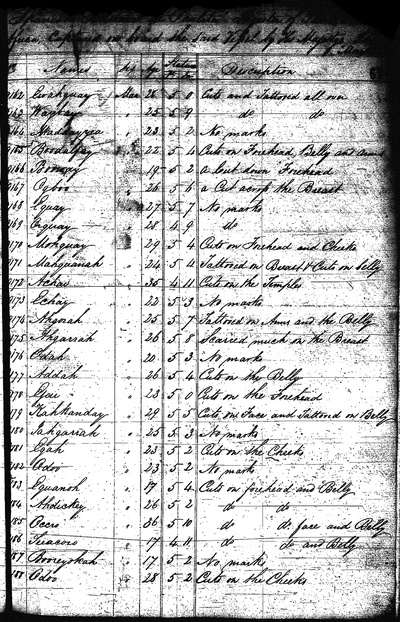 Names Sex Age Stature F. In. Description
7162 Evahguay Man 26 5 0 Cuts and Tattooed all over
7163 Wayhay " 25 5 9 do do
7164 Maddayyea " 23 5 2 No marks
7165 Boodalay " 22 5 4 Cuts on Forehead, Belly and Arms
7166 Boomey " 19 5 2 a Cut down Forehead
7167 Ogboo " 26 5 6 a Cut across the Breast
7168 Eguay " 27 5 7 No marks
7169 Eguay " 28 4 9 do
7170 Mohguay " 29 5 4 Cuts on Forehead and Cheeks
7171 Mahguanah " 24 5 4 Tattooed on Breast & Cuts on belly
7172 Achai " 35 4 11 Cuts on the Temples
7173 Echay " 22 5 3 No marks
7174 Ahgorah " 25 5 7 Tattooed on Arms and the Belly
7175 Ahgarrah " 26 5 8 Scarred much on the Breast
7176 Odah " 20 5 3 No marks
7177 Addah " 26 5 4 Cuts on the Belly
7178 Ejai " 23 5 0 Cuts on the Forehead
7179 Kahkanday " 29 5 5 Cuts on Face and Tattooed on Belly
7180 Jahgariah " 25 5 3 No marks
7181 Egah " 23 5 2 Cuts on the Cheeks
7182 Adoo " 23 5 2 No marks
7183 Eguanoh " 17 5 4 Cuts on forehead and Belly
7184 Ahdickey " 26 5 2 do do
7185 Occro " 36 5 10 do do face and Belly
7186 " 17 4 11 do do and Belly
7187 Booreyokah " 17 5 2 No marks
7188 Odoo " 28 5 2 Cuts on the Cheeks